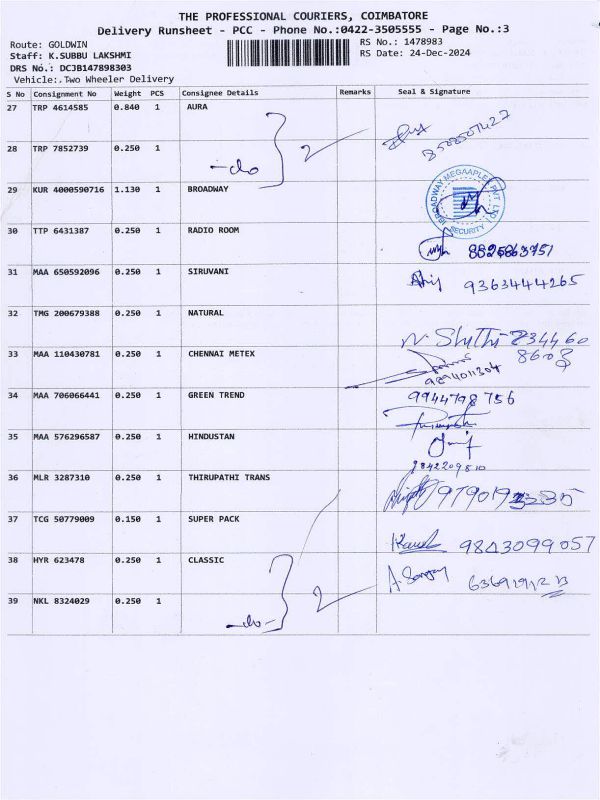 THE PROFESSIONAL COURIERS, COIMBATORE
Delivery Runsheet - PCC - Phone No.:0422-3505555 - Page No.:3
Route: GOLDWIN RS No.: 1478983
Staff: K.SUBBU LAKSHMI RS Date: 24-Dec-2024
DRS No.: DCJB147898303
Vehicle:.Two Wheeler Delivery
S No Consignment No Weight PCS Consignee Details Remarks Seal & Signature
27 TRP 4614585 0.840 1 AURA
28 TRP 7852739 0.250 1
-do 2
29 KUR 4000590716 1.130 1 BROADWAY
BROADWAY MEGAAPLEX PVT LTD
SECURITY
30 TTP 6431387 0.250 1 RADIO ROOM
31 MAA 650592096 0.250 1 SIRUVANI 9363444265
32 TMG 200679388 0.250 1 NATURAL
33 MAA 110430781 0.250 1 CHENNAI METEX 9894011304
34 MAA 706066441 0.250 1 GREEN TREND 9944798756
35 MAA 576296587 0.250 1 HINDUSTAN
9842209810
36 MLR 3287310 0.250 1 THIRUPATHI TRANS
37 TCG 50779009 0.150 1 SUPER PACK 9843099057
38 HYR 623478 0.250 1 CLASSIC
39 NKL 8324029 0.250 1
-do- 2